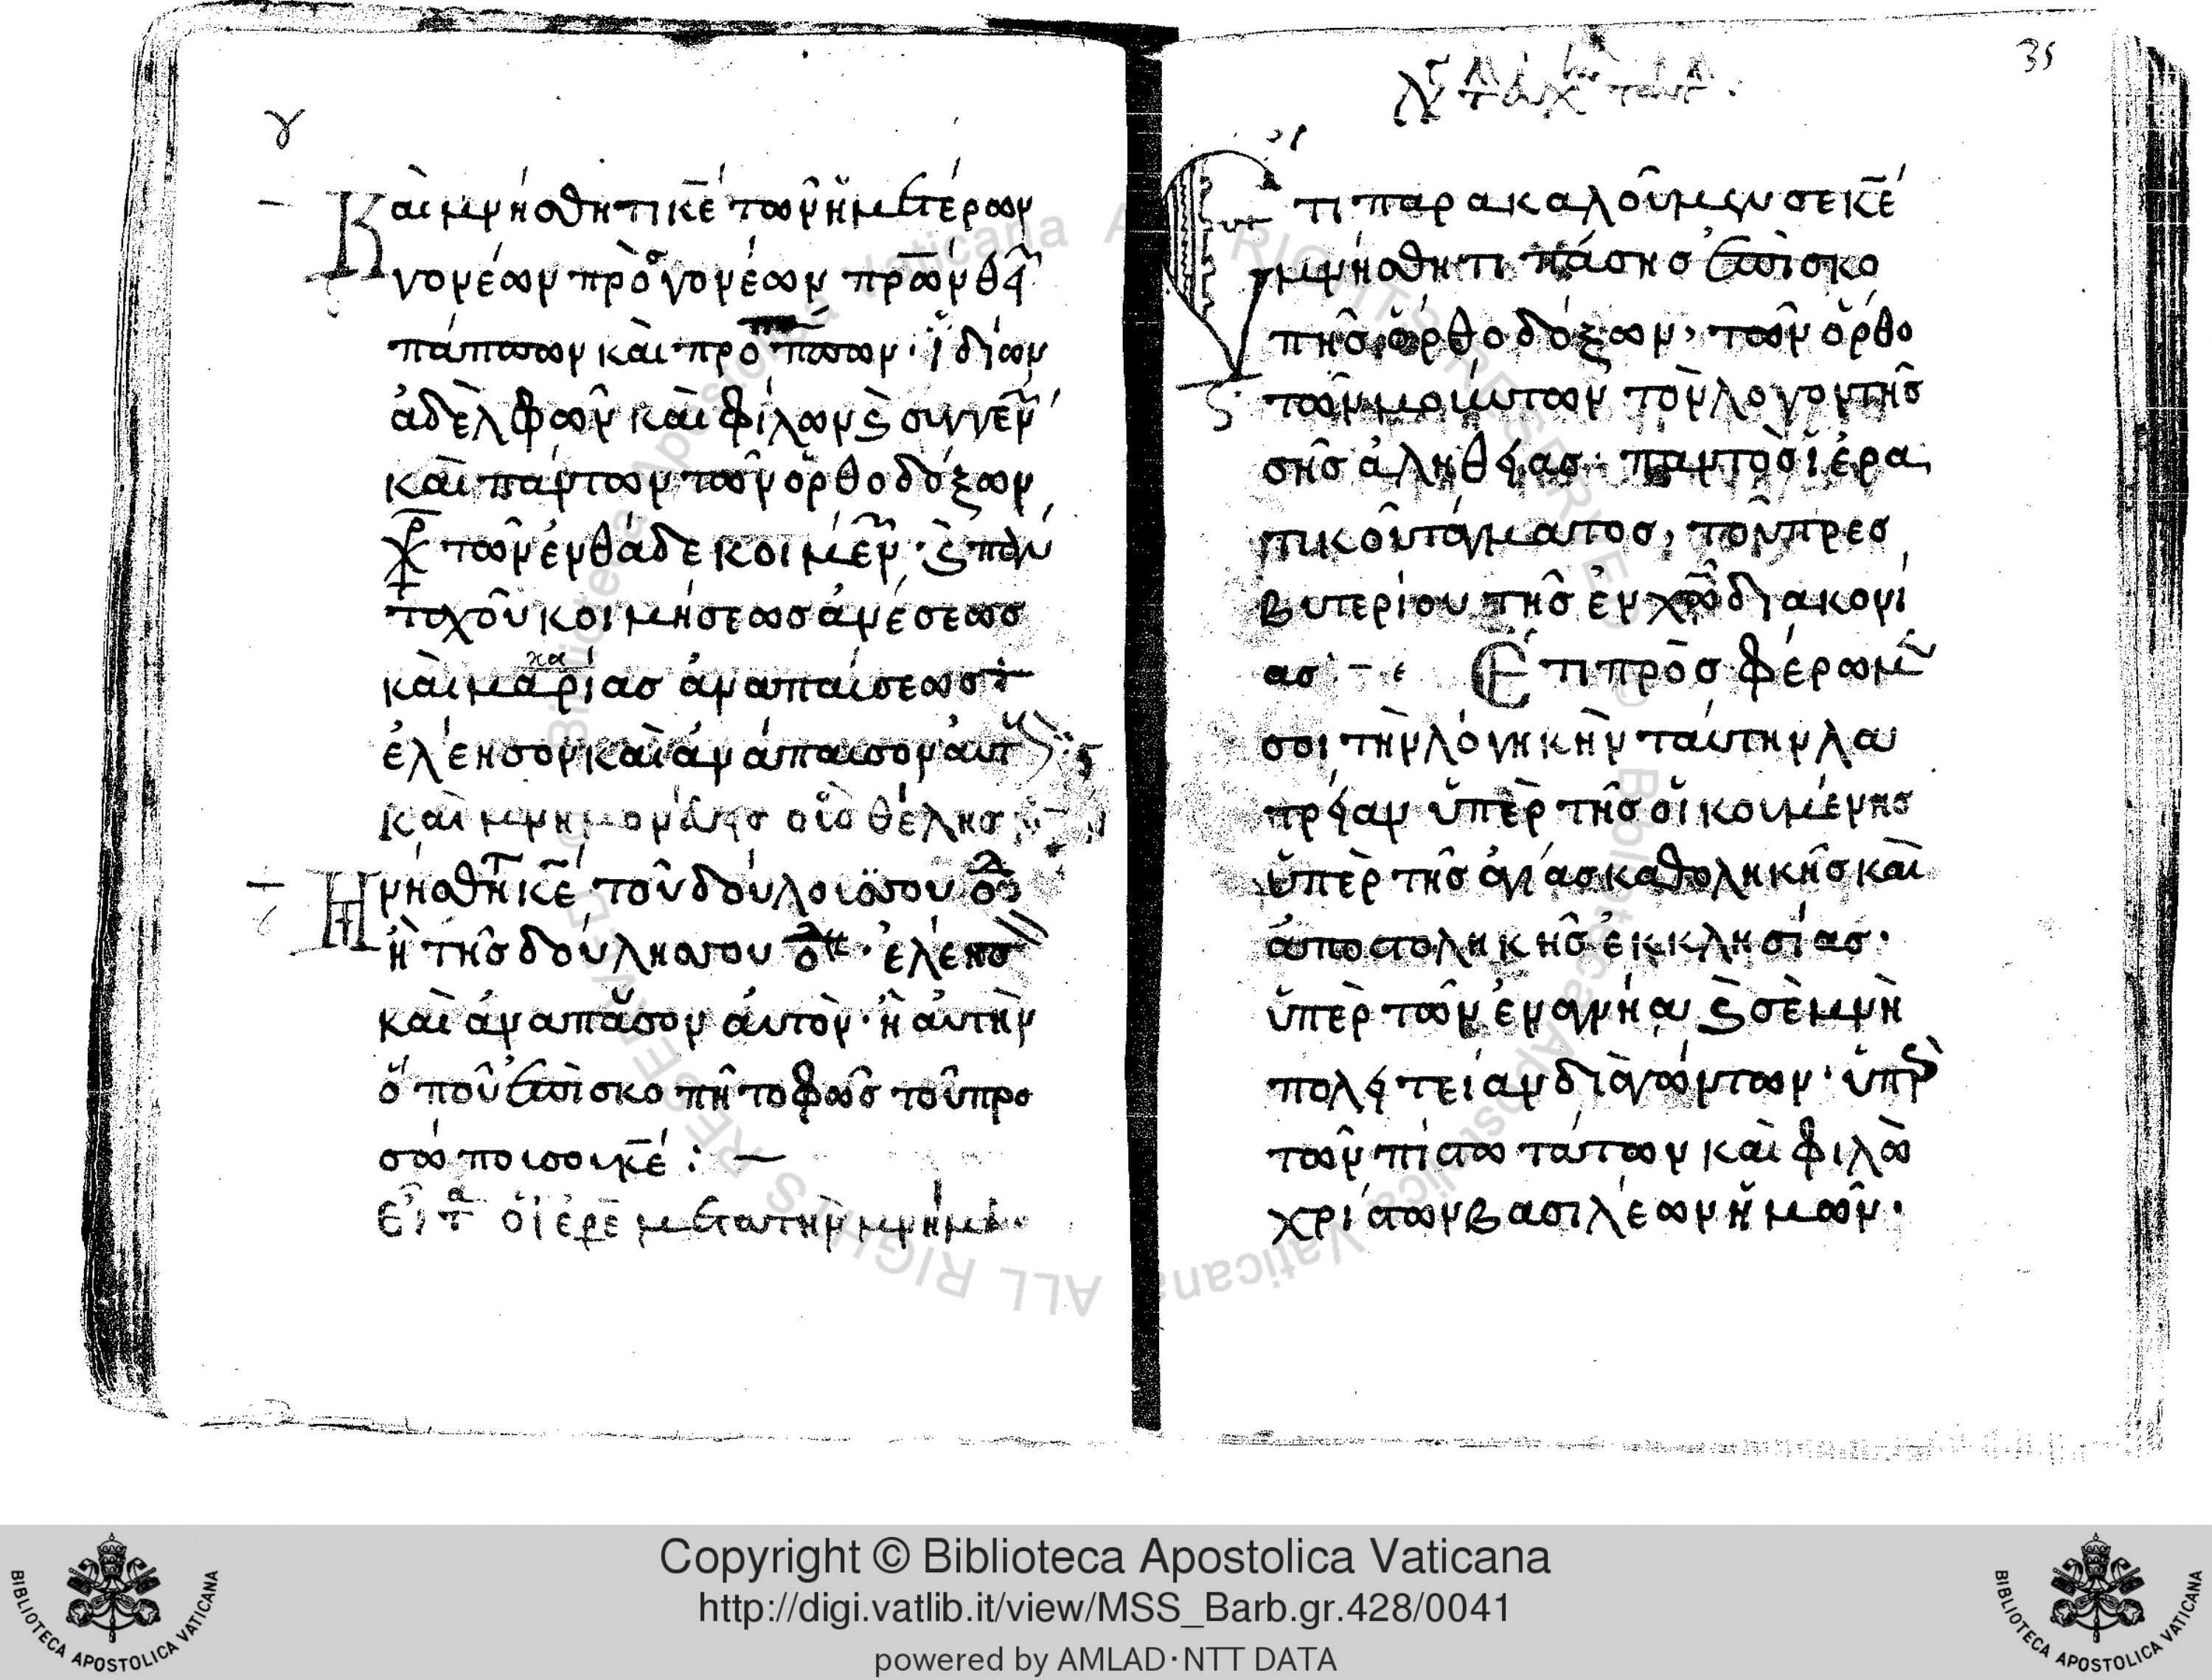 γ
Καὶ μνήσθητι κε΄ τῶν ἡμετέρων
γονέων προγονέων πρων θεί
πάππων καὶ προπάππων· ἰδίων
ἀδὲλφῶν καὶ φίλων ϛ συγγεν
καὶ πάντων τῶν ὀρθοδόξων
τῶν ἐνθάδε κοιμεν· ϛ παν
κοιμήσεως ἀνέσεως
καὶ μακαρίας ἀναπαύσεως
ἐλέησον καὶ ἀνάπαυσον αὐτ
καὶ μνημονεύεις οἷς θέλης
Μνήσθητι κε, τοῦ δούλου σου
ἢ τῆς δούλης σου ἐλέησ
καὶ ἀναπαῦσον αὐτὸν· ἢ αὐτὴν
ὅπου ἐπισκοπῆ το φῶς τοῦ προ
σώποι σου κε΄: —
35
Ετι παρακαλοῦμεν σε κε΄
μνήσθητι πάσης ἐπισκο
πῆς ὀρθοδόξων, τῶν ὀρθο
τομούντων τὸν λογον τῆς
σῆς ἀληθείας· παντὸς ἱερα
τικοῦ τάγματος, τοῦ πρεσ
βυτερίου τῆς ἐν χῶ διακονί
ας· – Ετι πρὸσφέρωμ
σοι τὴν λόγηκὴν ταύτην λα
τρείαν ὑπὲρ τῆς οἰκουμένης
ὑπὲρ τῆς ἁγίας καθοληκῆς καὶ
ἀποστοληκῆς ἐκκλησίας·
ὑπὲρ τῶν ἐν ἁγνήα ϛ σὲμνὴ
πολειτείαν διὰγώντων· ὑπὲρ
τῶν πίστωτάτων καὶ φιλὼ
χρίστων βασιλέων ἡμῶν·
Copyright © Biblioteca Apostolica Vaticana
http://digi.vatlib.it/view/MSS_Barb.gr.428/0041
powered by AMLAD·NTT DATA
BIBLIOTECA APOSTOLICA VATICANA
BIBLIOTECA APOSTOLICA VATICANA